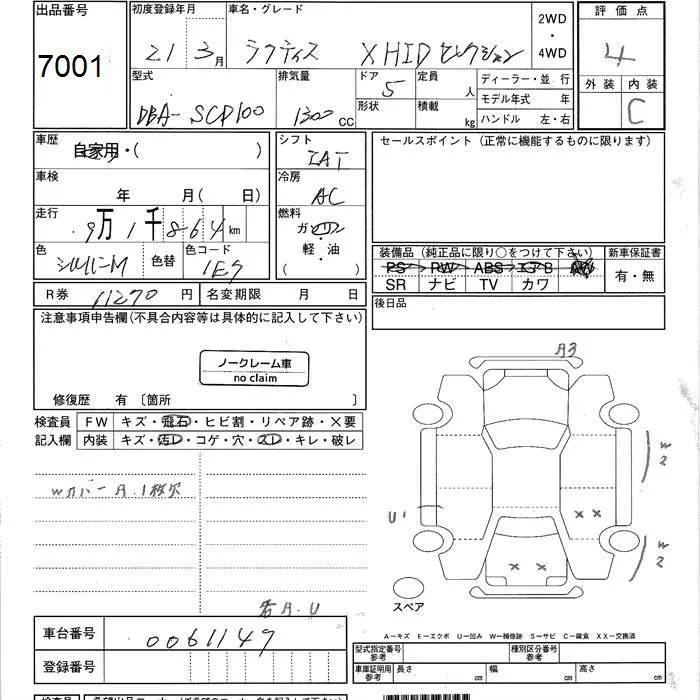 出品番号 7001
初度登録年月 21 3月
車名・グレード ラクティス X HID セレクション
2WD ・ 4WD
評価点 4
外装 内装 C
型式 DBA-SCP100
排気量 1300 CC
ドア 5
形状
定員 人
積載 kg
ディーラー・並行
モデル年式 年
ハンドル 左・右
車歴 自家用・( )
シフト IAT
セールスポイント(正常に機能するものに限ります)
車検 年 月(日)
冷房 AC
走行 9万1千864km
燃料 ガソリン 軽・油 ( )
色 シルバーM 色替
色コード 1E7
装備品(純正品に限り○をつけて下さい)
PS PW ABS エアB AW
SR ナビ TV カワ
新車保証書 有・無
R券 11270円
名変期限 月 日
後日品
注意事項申告欄(不具合内容等は具体的に記入して下さい)
ノークレーム車
no claim
修復歴 有〔箇所 〕
検査員記入欄
FW キズ・飛石・ヒビ割・リペア跡・×要
内装 キズ・汚レ・コゲ・穴・スレ・キレ・破レ
Wカバー A.1枚欠
A3
W2
U1
× ×
W2
× ×
スペア
若A.U
車台番号 0061149
登録番号
A−キズ E−エクボ U−凹み W−補修跡 S−サビ C−腐食 XX−交換済
型式指定番号 参考
種別区分番号 参考
車庫証明用 参考
長さ cm
幅 cm
高さ cm